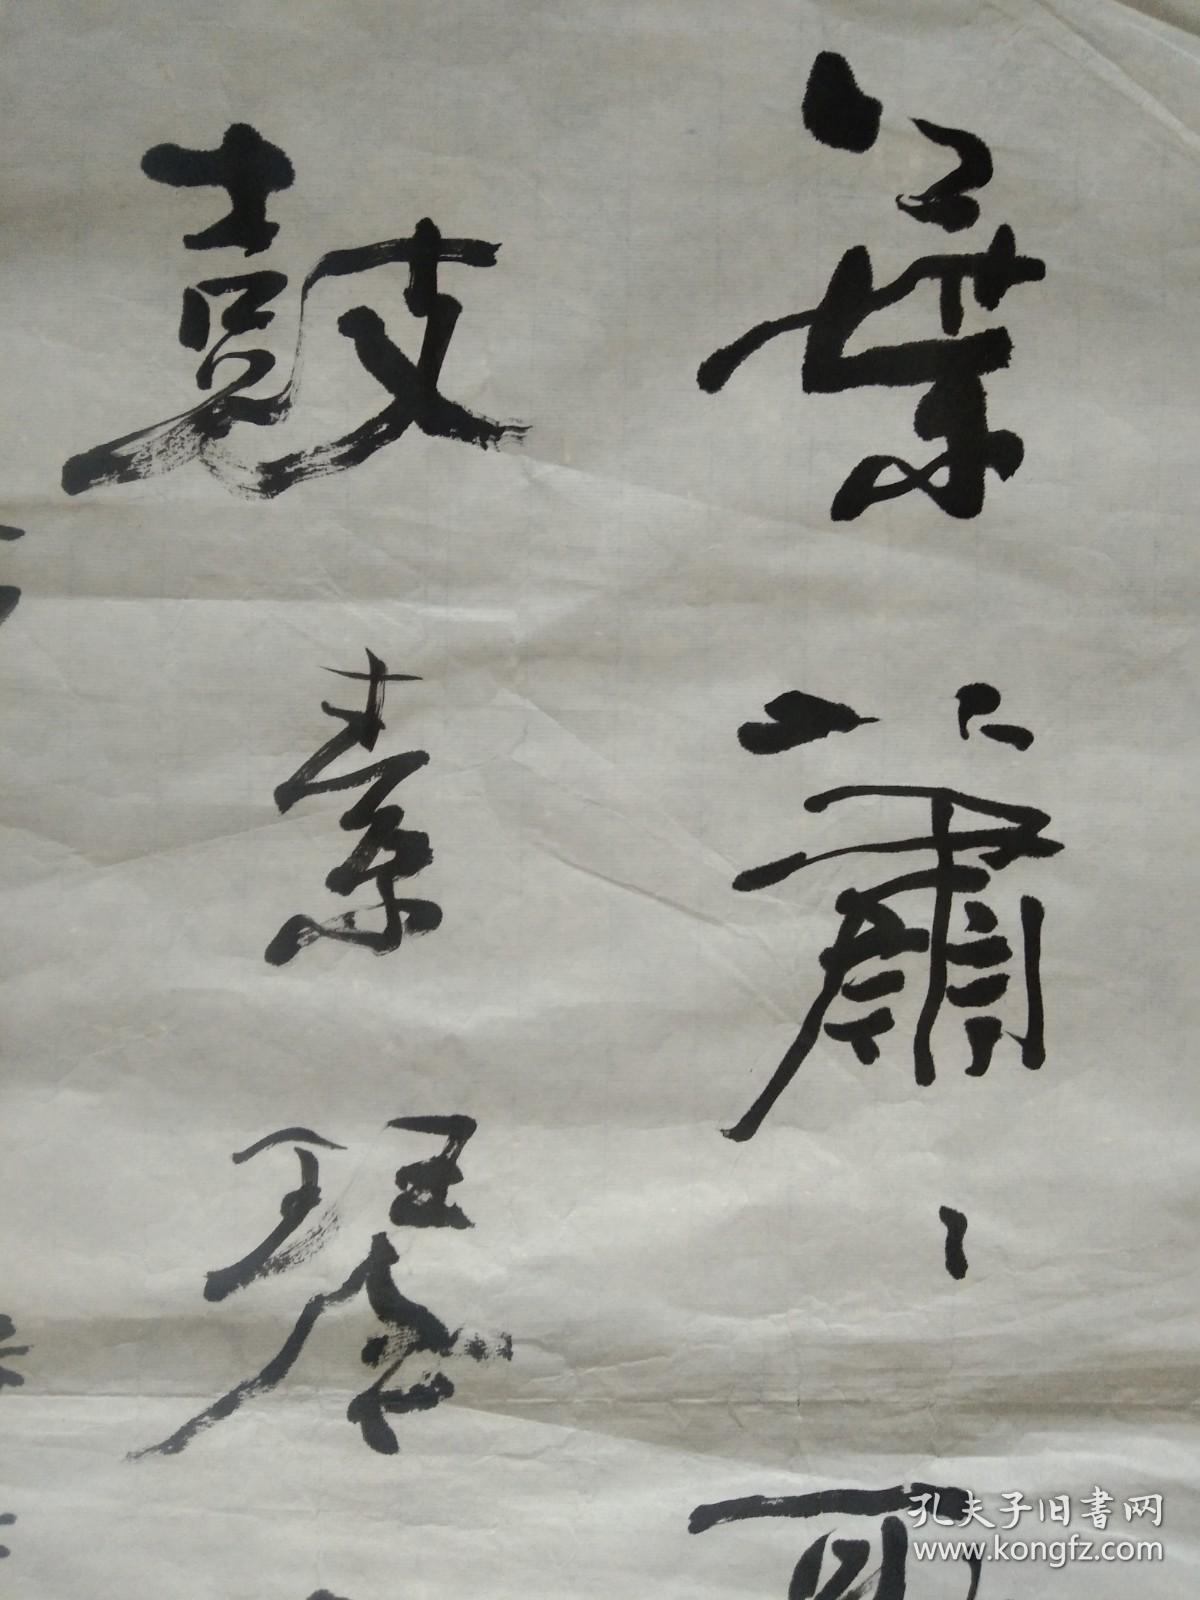 葉蕭〻
鼓素琴
孔夫子旧书网
www.kongfz.com